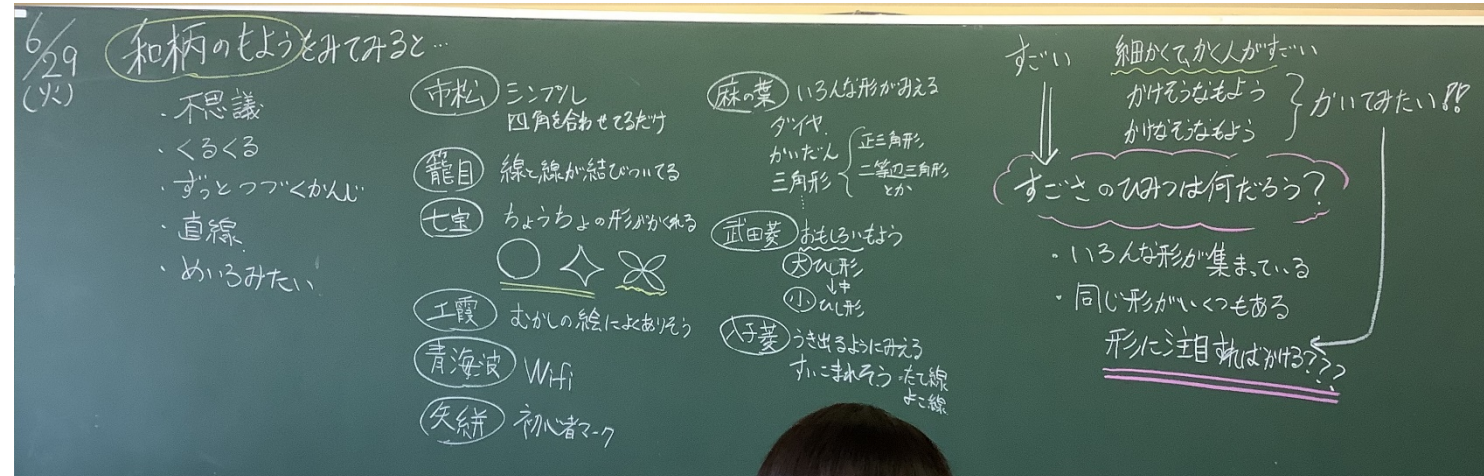 6/29
(火)
和柄のもようをみてみると…
・不思議
・くるくる
・ずっとつづくかんじ
・直線
・めいろみたい
市松 シンプル
四角を合わせてるだけ
籠目 線と線が結びついてる
七宝 ちょうちょの形がかくれる
工霞 むかしの絵によくありそう
青海波 Wifi
矢絣 初心者マーク
麻の葉 いろんな形がみえる
ダイヤ
かいだん
三角形
…
正三角形
二等辺三角形
とか
武田菱 おもしろいもよう
大 ひし形
↓中
小 ひし形
八子菱 うき出るようにみえる
すいこまれそう・たて線
よこ線
すごい
細かくて、かく人がすごい
かけそうなもよう
かけなそうなもよう
かいてみたい!!
すごさのひみつは何だろう?
・いろんな形が集まっている
・同じ形がいくつもある
形に注目すればかける???